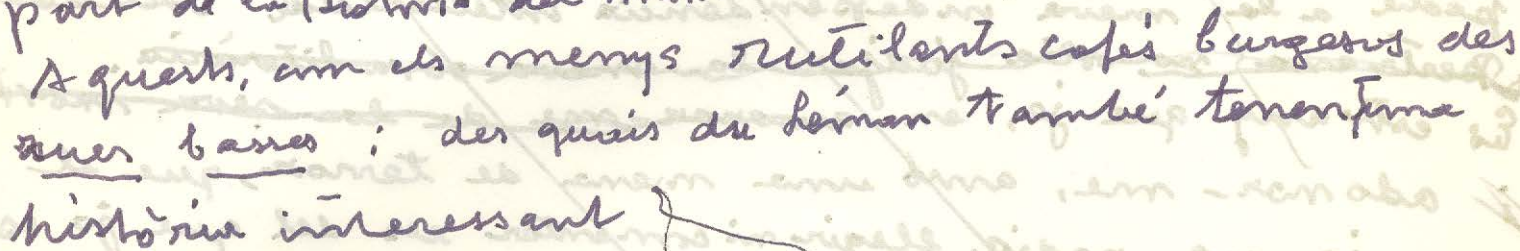 part de la història del
Aquests, com els menys rutilants cafés burgesos des
rues basses i des quais du Léman també tenen una
història interessant